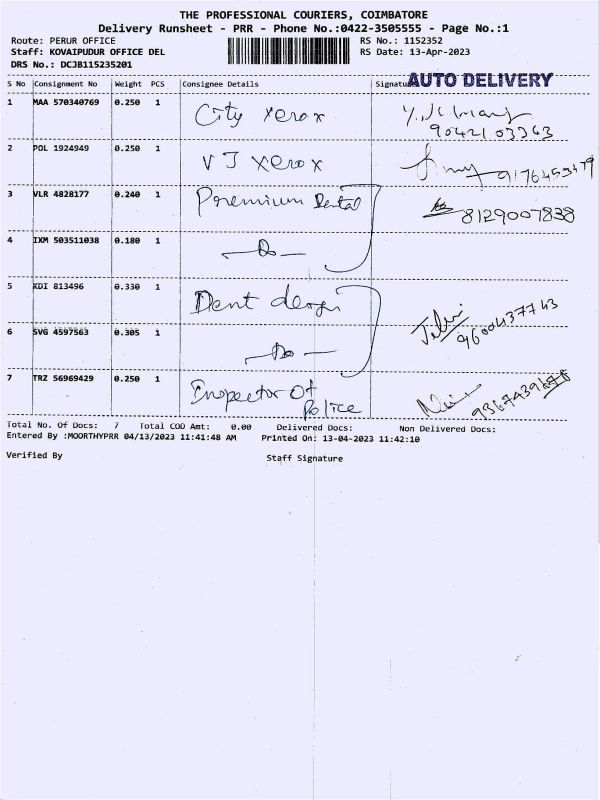 THE PROFESSIONAL COURIERS, COIMBATORE
Delivery Runsheet - PRR - Phone No.:0422-3505555 - Page No.:1
Route: PERUR OFFICE RS No.: 1152352
Staff: KOVAIPUDUR OFFICE DEL RS Date: 13-Apr-2023
DRS No.: DCJB115235201
AUTO DELIVERY
S No Consignment No Weight PCS Consignee Details Signature
1 MAA 570340769 0.250 1 City Xerox
9042103363
2 POL 1924949 0.250 1 V J Xerox
3 VLR 4828177 0.240 1 Premium Dental 8129007838
4 IXM 503511038 0.180 1 - Do -
5 KDI 813496 0.330 1 Dent design
9600437743
6 SVG 4597563 0.305 1 - Do -
7 TRZ 56969429 0.250 1 Inspector Of
Police
Total No. Of Docs: 7 Total COD Amt: 0.00 Delivered Docs: Non Delivered Docs:
Entered By :MOORTHYPRR 04/13/2023 11:41:48 AM Printed On: 13-04-2023 11:42:10
Verified By Staff Signature